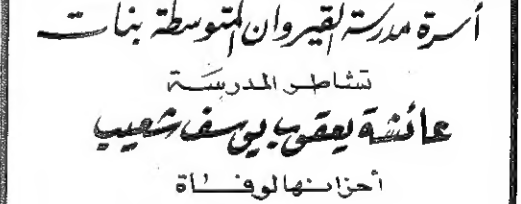 أسرة مدرسة القيروان المتوسطة بنات
تشاطر المدرسة
عائشة يعقوب يوسف شعيب
أحزانها لوفاة